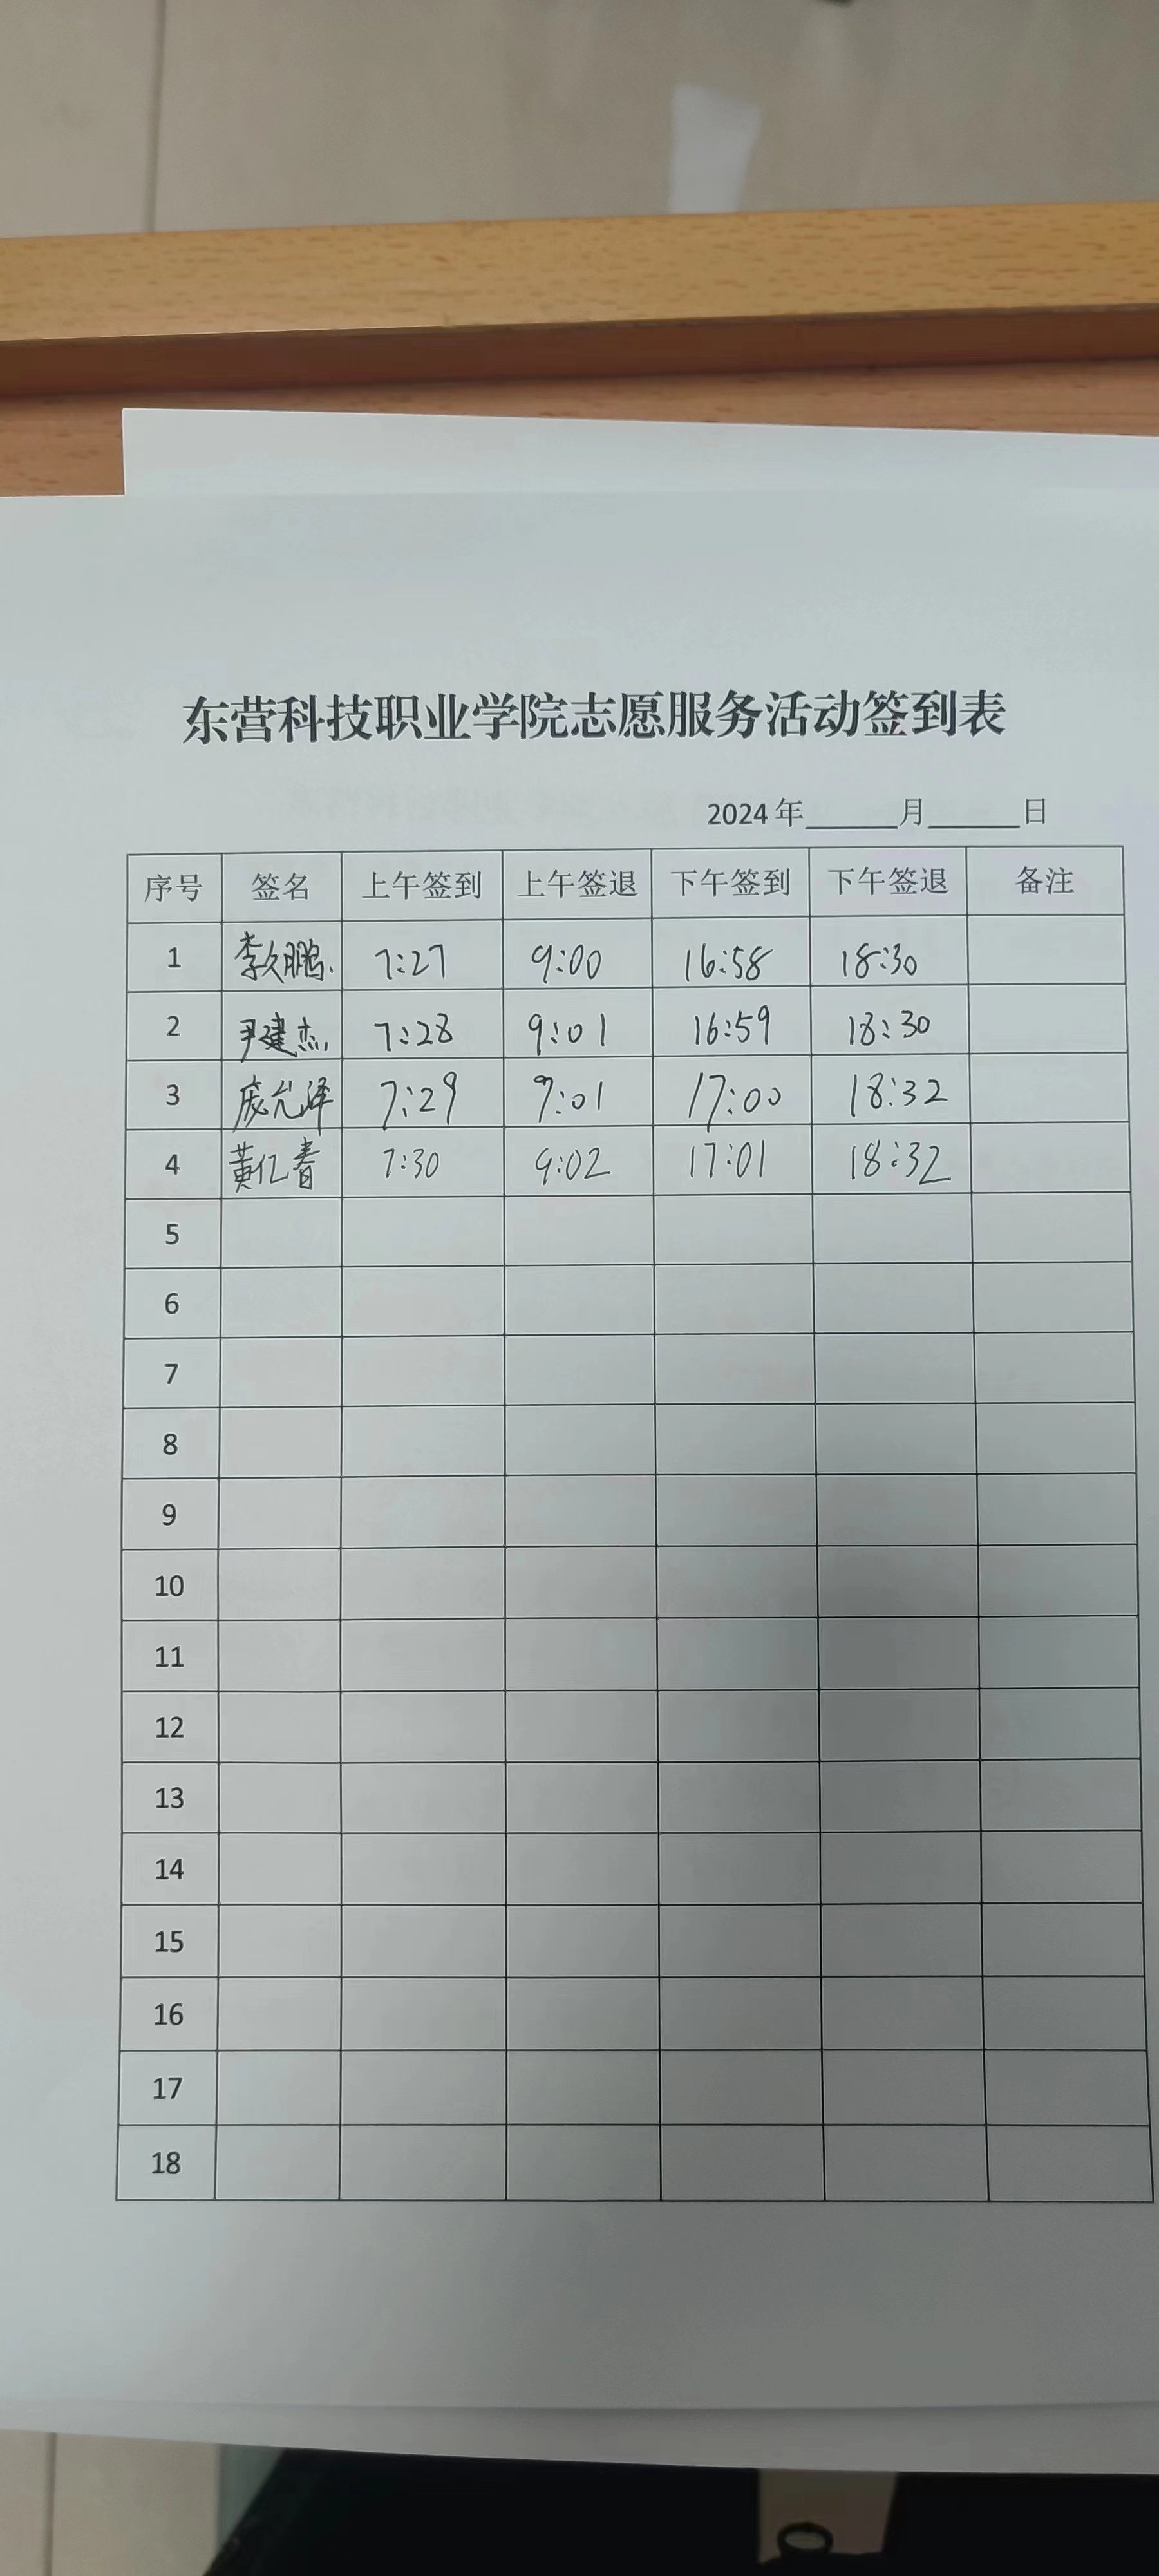 东营科技职业学院志愿服务活动签到表
2024年______月______日
序号 签名 上午签到 上午签退 下午签到 下午签退 备注
1 李久鹏 7:27 9:00 16:58 18:30
2 尹建杰 7:28 9:01 16:59 18:30
3 庞允泽 7:29 9:01 17:00 18:32
4 黄亿春 7:30 9:02 17:01 18:32
5
6
7
8
9
10
11
12
13
14
15
16
17
18